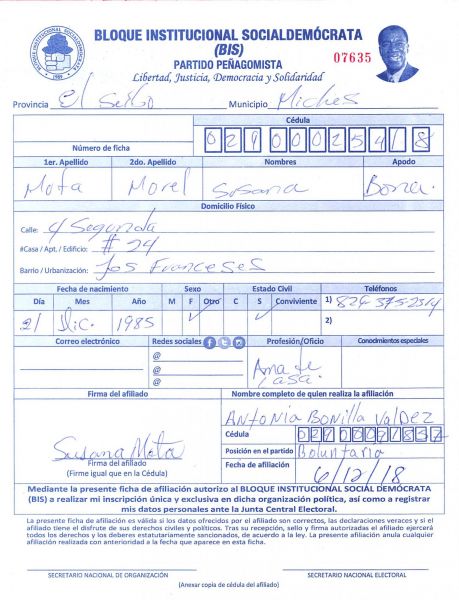 BLOQUE INSTITUCIONAL SOCIALDEMÓCRATA
(BIS)
PARTIDO PEÑAGOMISTA
07635
Libertad, Justicia, Democracia y Solidaridad
Provincia El Seibo Municipio Miches
Cédula
Número de ficha
1er. Apellido 2do. Apellido Nombres Apodo
Mota Morel Susana Bona.
Domicilio Físico
Calle: 4 Segunda
#Casa / Apt. / Edificio: # 24
Barrio / Urbanización: Los Franceses
Fecha de nacimiento Sexo Estado Civil Teléfonos
Día Mes Año M F Otro C S Conviviente 1)
21 Dic. 1985 2)
Correo electrónico Redes sociales Profesión/Oficio Conocimientos especiales
@
@
@
Ama de
Casa.
Firma del afiliado Nombre completo de quien realiza la afiliación
Antonia Bonilla Valdez
Cédula
Susana Mota
Posición en el partido Boluntaria
Firma del afiliado
(Firme igual que en la Cédula)
Fecha de afiliación 6/12/18
Mediante la presente ficha de afiliación autorizo al BLOQUE INSTITUCIONAL SOCIAL DEMÓCRATA
(BIS) a realizar mi inscripción única y exclusiva en dicha organización política, así como a registrar
mis datos personales ante la Junta Central Electoral.
La presente ficha de afiliación es válida si los datos ofrecidos por el afiliado son correctos, las declaraciones veraces y si el
afiliado tiene el disfrute de sus derechos civiles y políticos. Tras su recepción, sello y firma autorizadas el afiliado ejercerá
todos los derechos y los deberes estatutariamente sancionados, de acuerdo a la ley. La presente afiliación anula cualquier
afiliación realizada con anterioridad a la fecha que aparece en esta ficha.
SECRETARIO NACIONAL DE ORGANIZACIÓN SECRETARIO NACIONAL ELECTORAL
(Anexar copia de cédula del afiliado)